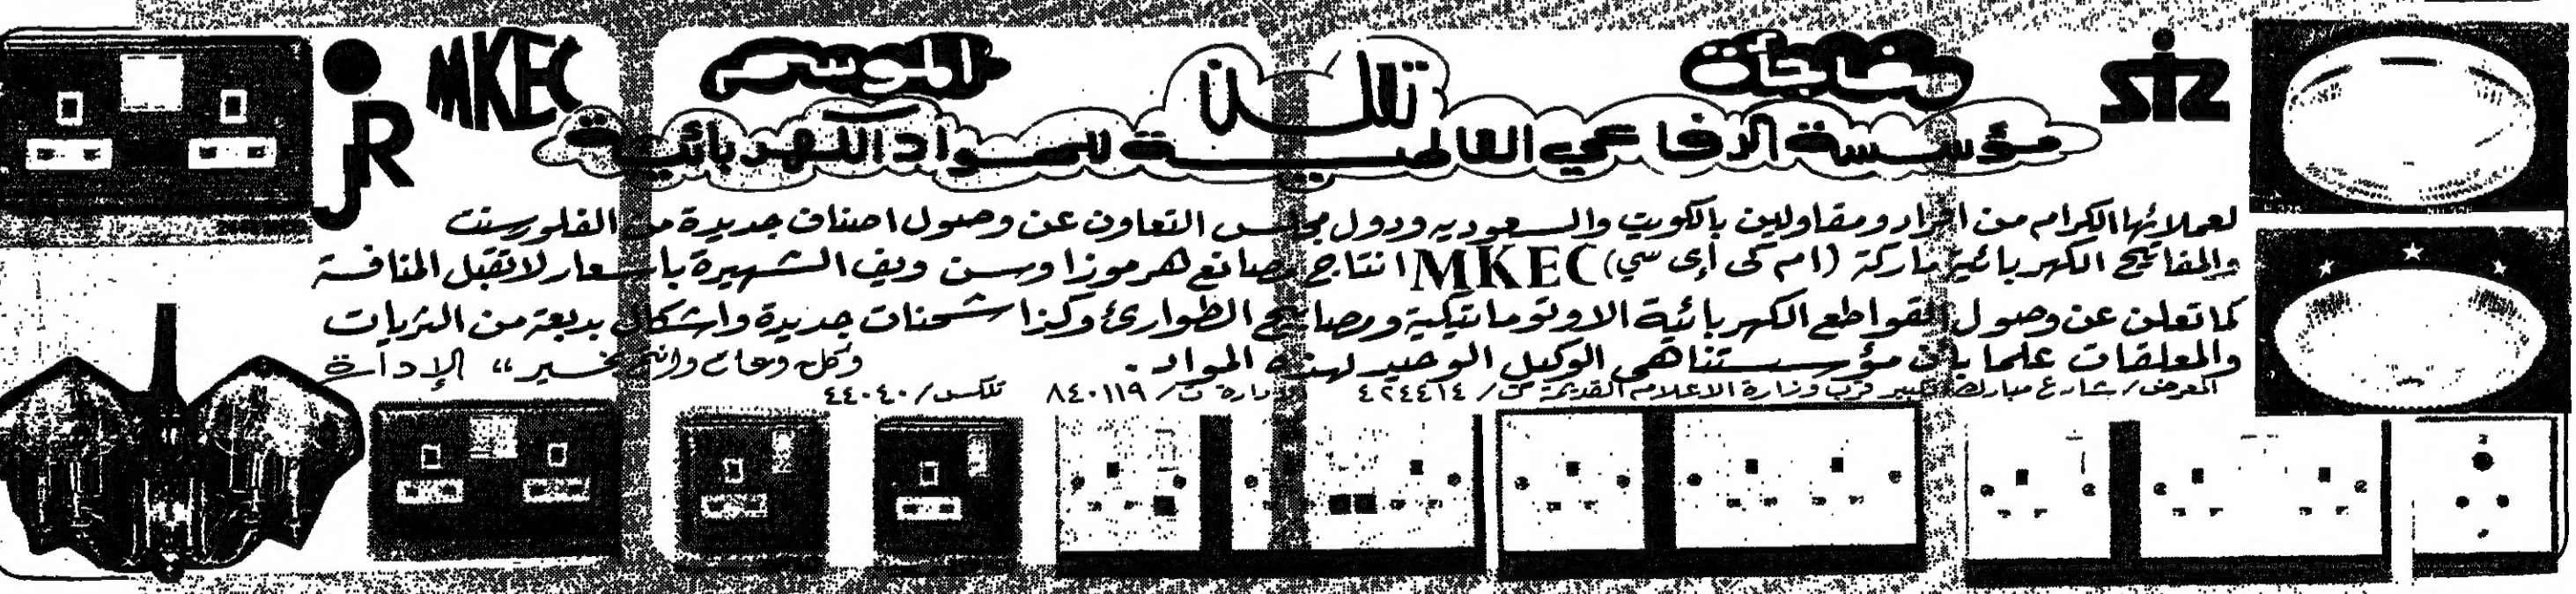 SiZ
مفاجأة
تعلن
الموسم
MKEC
JR
مؤسسة الرفاعي العالمية للمواد الكهربائية
لعملائها الكرام من افراد ومقاولين بالكويت والسعوديه ودول مجلس التعاون عن وصول اصناف جديدة من الفلورسنت
والمفاتيح الكهربائية ماركة (ام كى أى سي) MKEC انتاج مصانع هرموزا وسن ويف الشهيرة باسعار لاتقبل المنافسة
كما تعلن عن وصول القواطع الكهربائية الاوتوماتيكية ومصابيح الطوارئ وكذا شحنات جديدة واشكال بديعة من الثريات
والمعلقات علما بان مؤسستنا هى الوكيل الوحيد لهذه المواد.
وكل وعام وانتم بخير " الإدارة
المعرض/ شارع مبارك الكبير قرب وزارة الاعلام القديمة ت/ ٤٢٤٤١٤ الادارة ت/ ٨٤٠١١٩ تلكس/ ٤٤٠٤٠